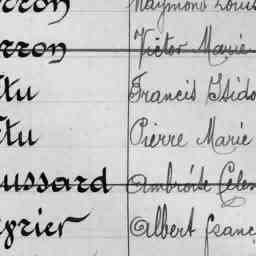 rron Raymond Louis
rron Victor Marie
ttu Francis Isido
ttu Pierre Marie
ussard Ambroise Céles
yrier Albert Franç